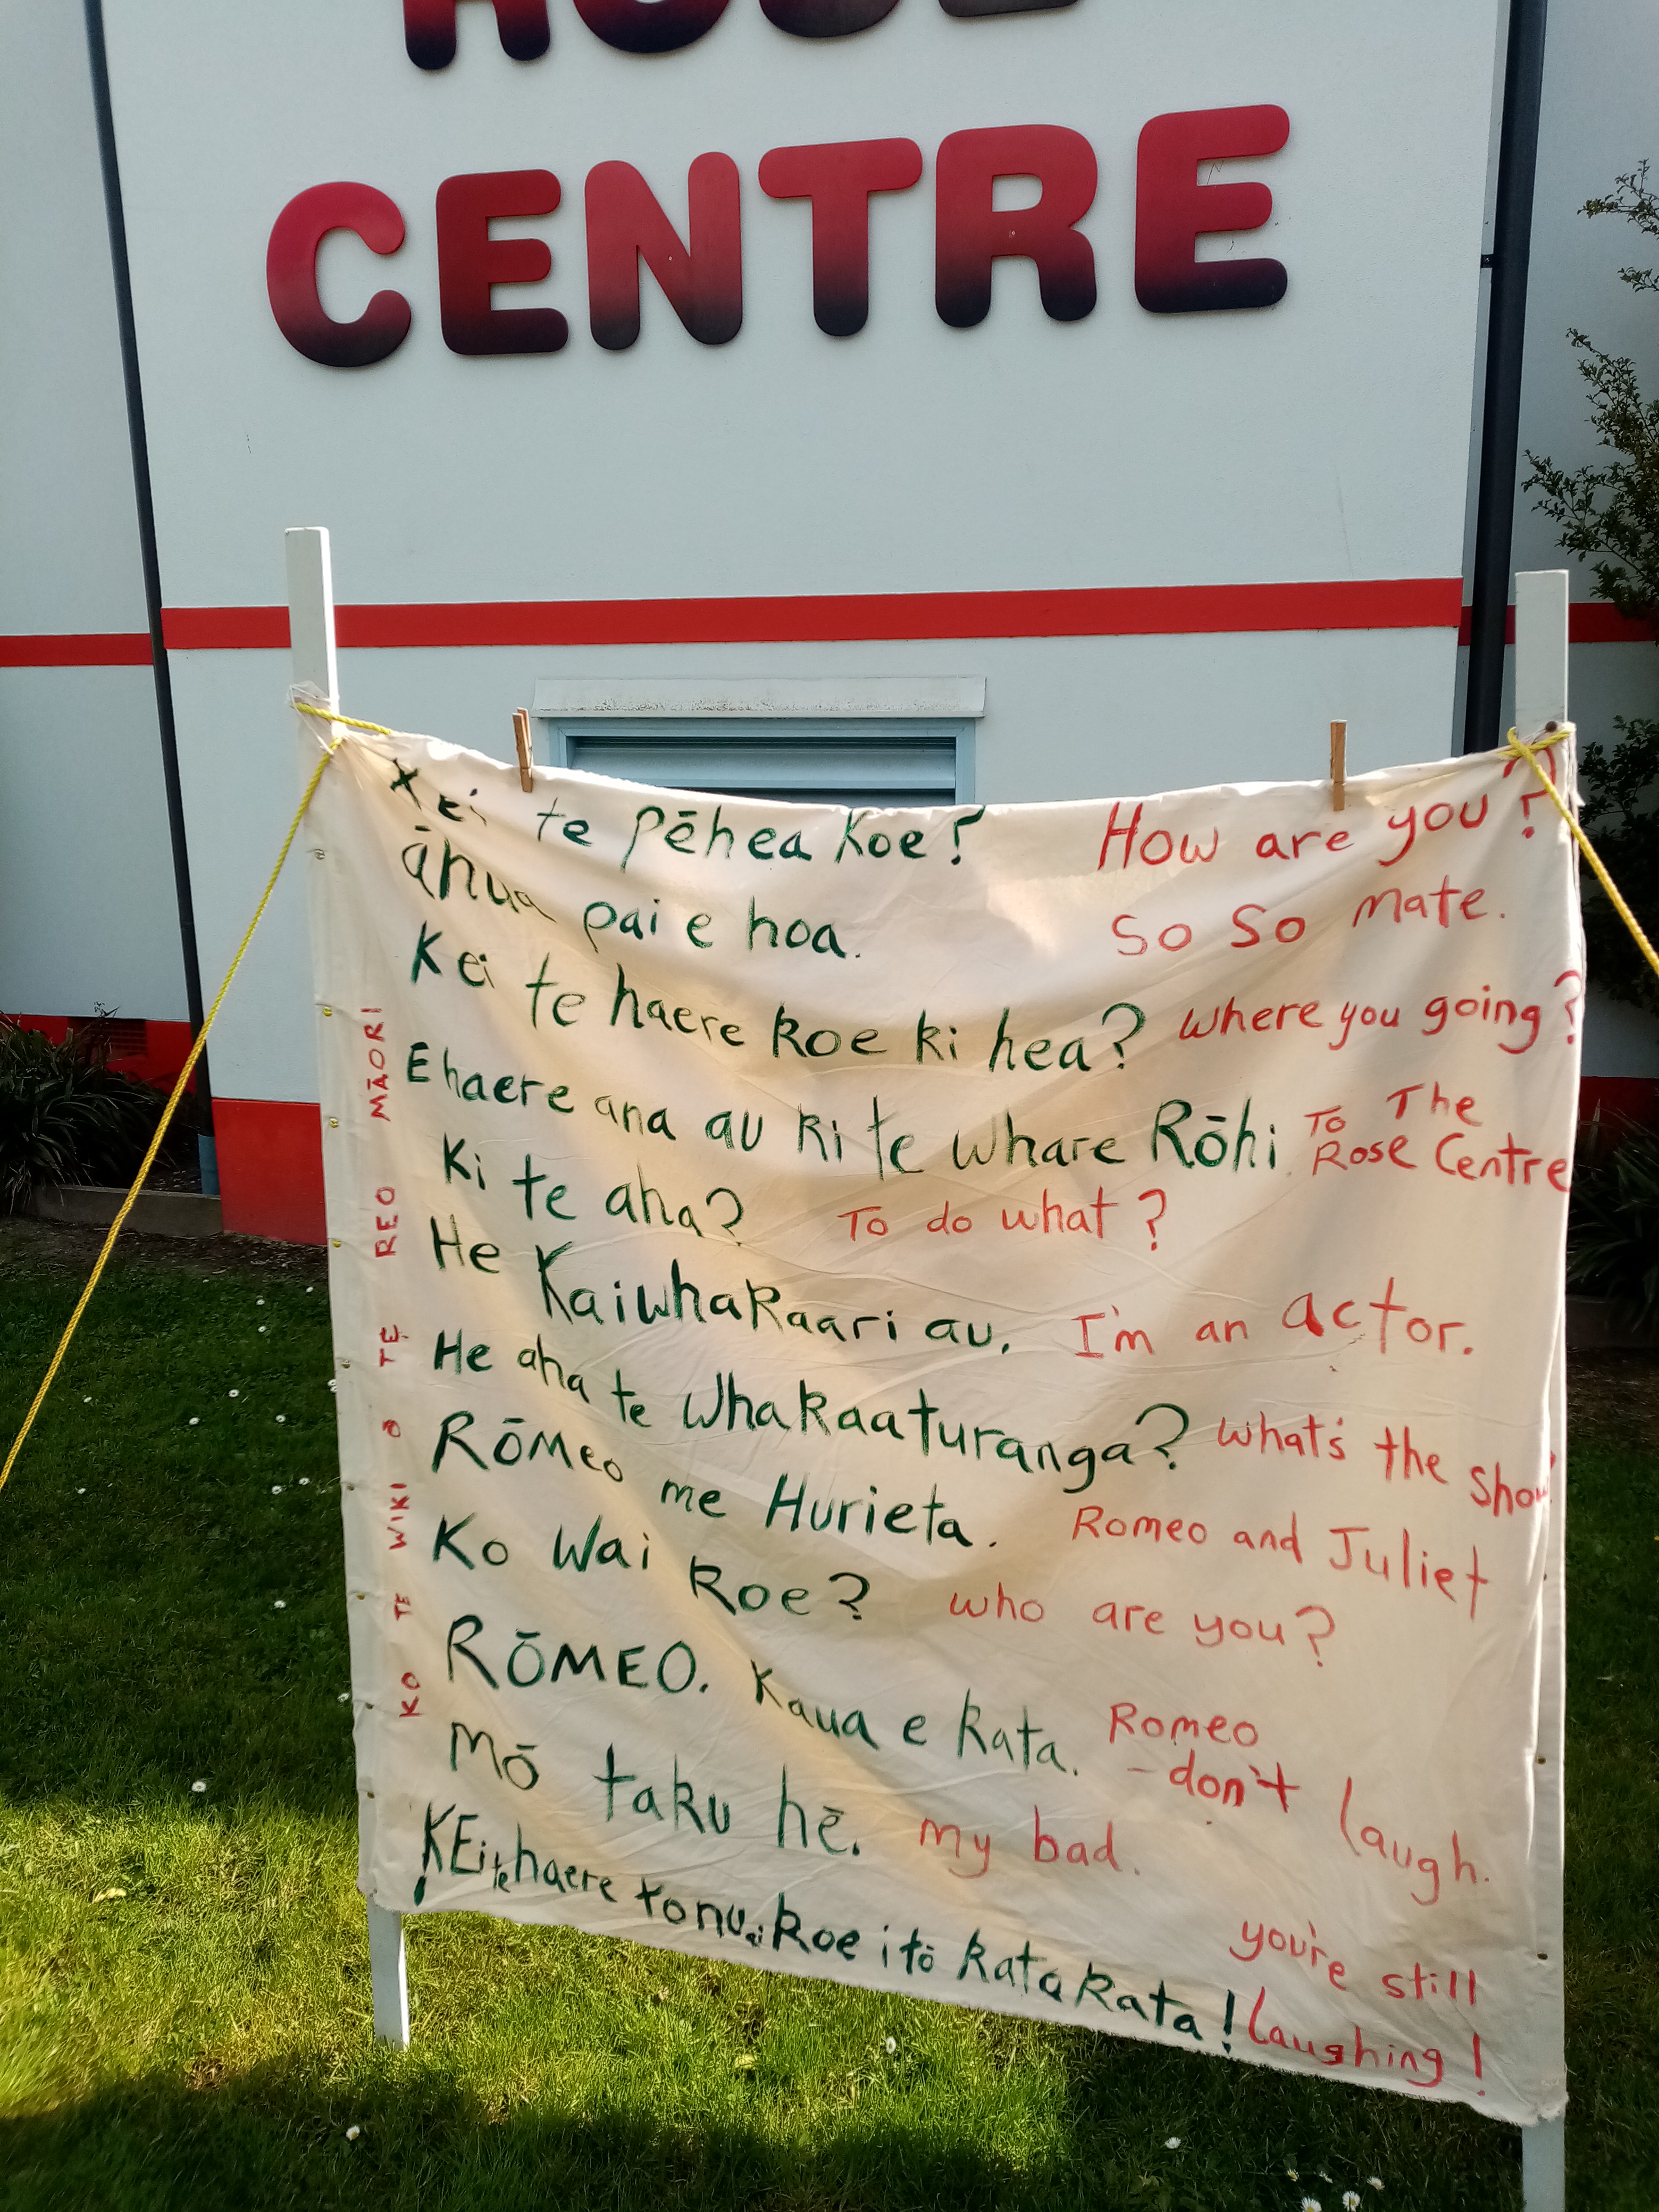 CENTRE
Kei te pēhea koe? How are you?
āhua pai e hoa. So So mate.
Kei te haere koe ki hea? where you going?
E haere ana au ki te whare Rōhi To The Rose Centre
Ki te aha? To do what?
He Kaiwhakaari au. I'm an actor.
He aha te Whakaaturanga? what's the show
Rōmeo me Hurieta. Romeo and Juliet
Ko Wai koe? who are you?
RŌMEO. Kaua e kata. Romeo - don't laugh.
Mō taku hē. my bad.
KEi te haere tonu koe i tō katakata! you're still Laughing!
KO TE WIKI O TE REO MĀORI